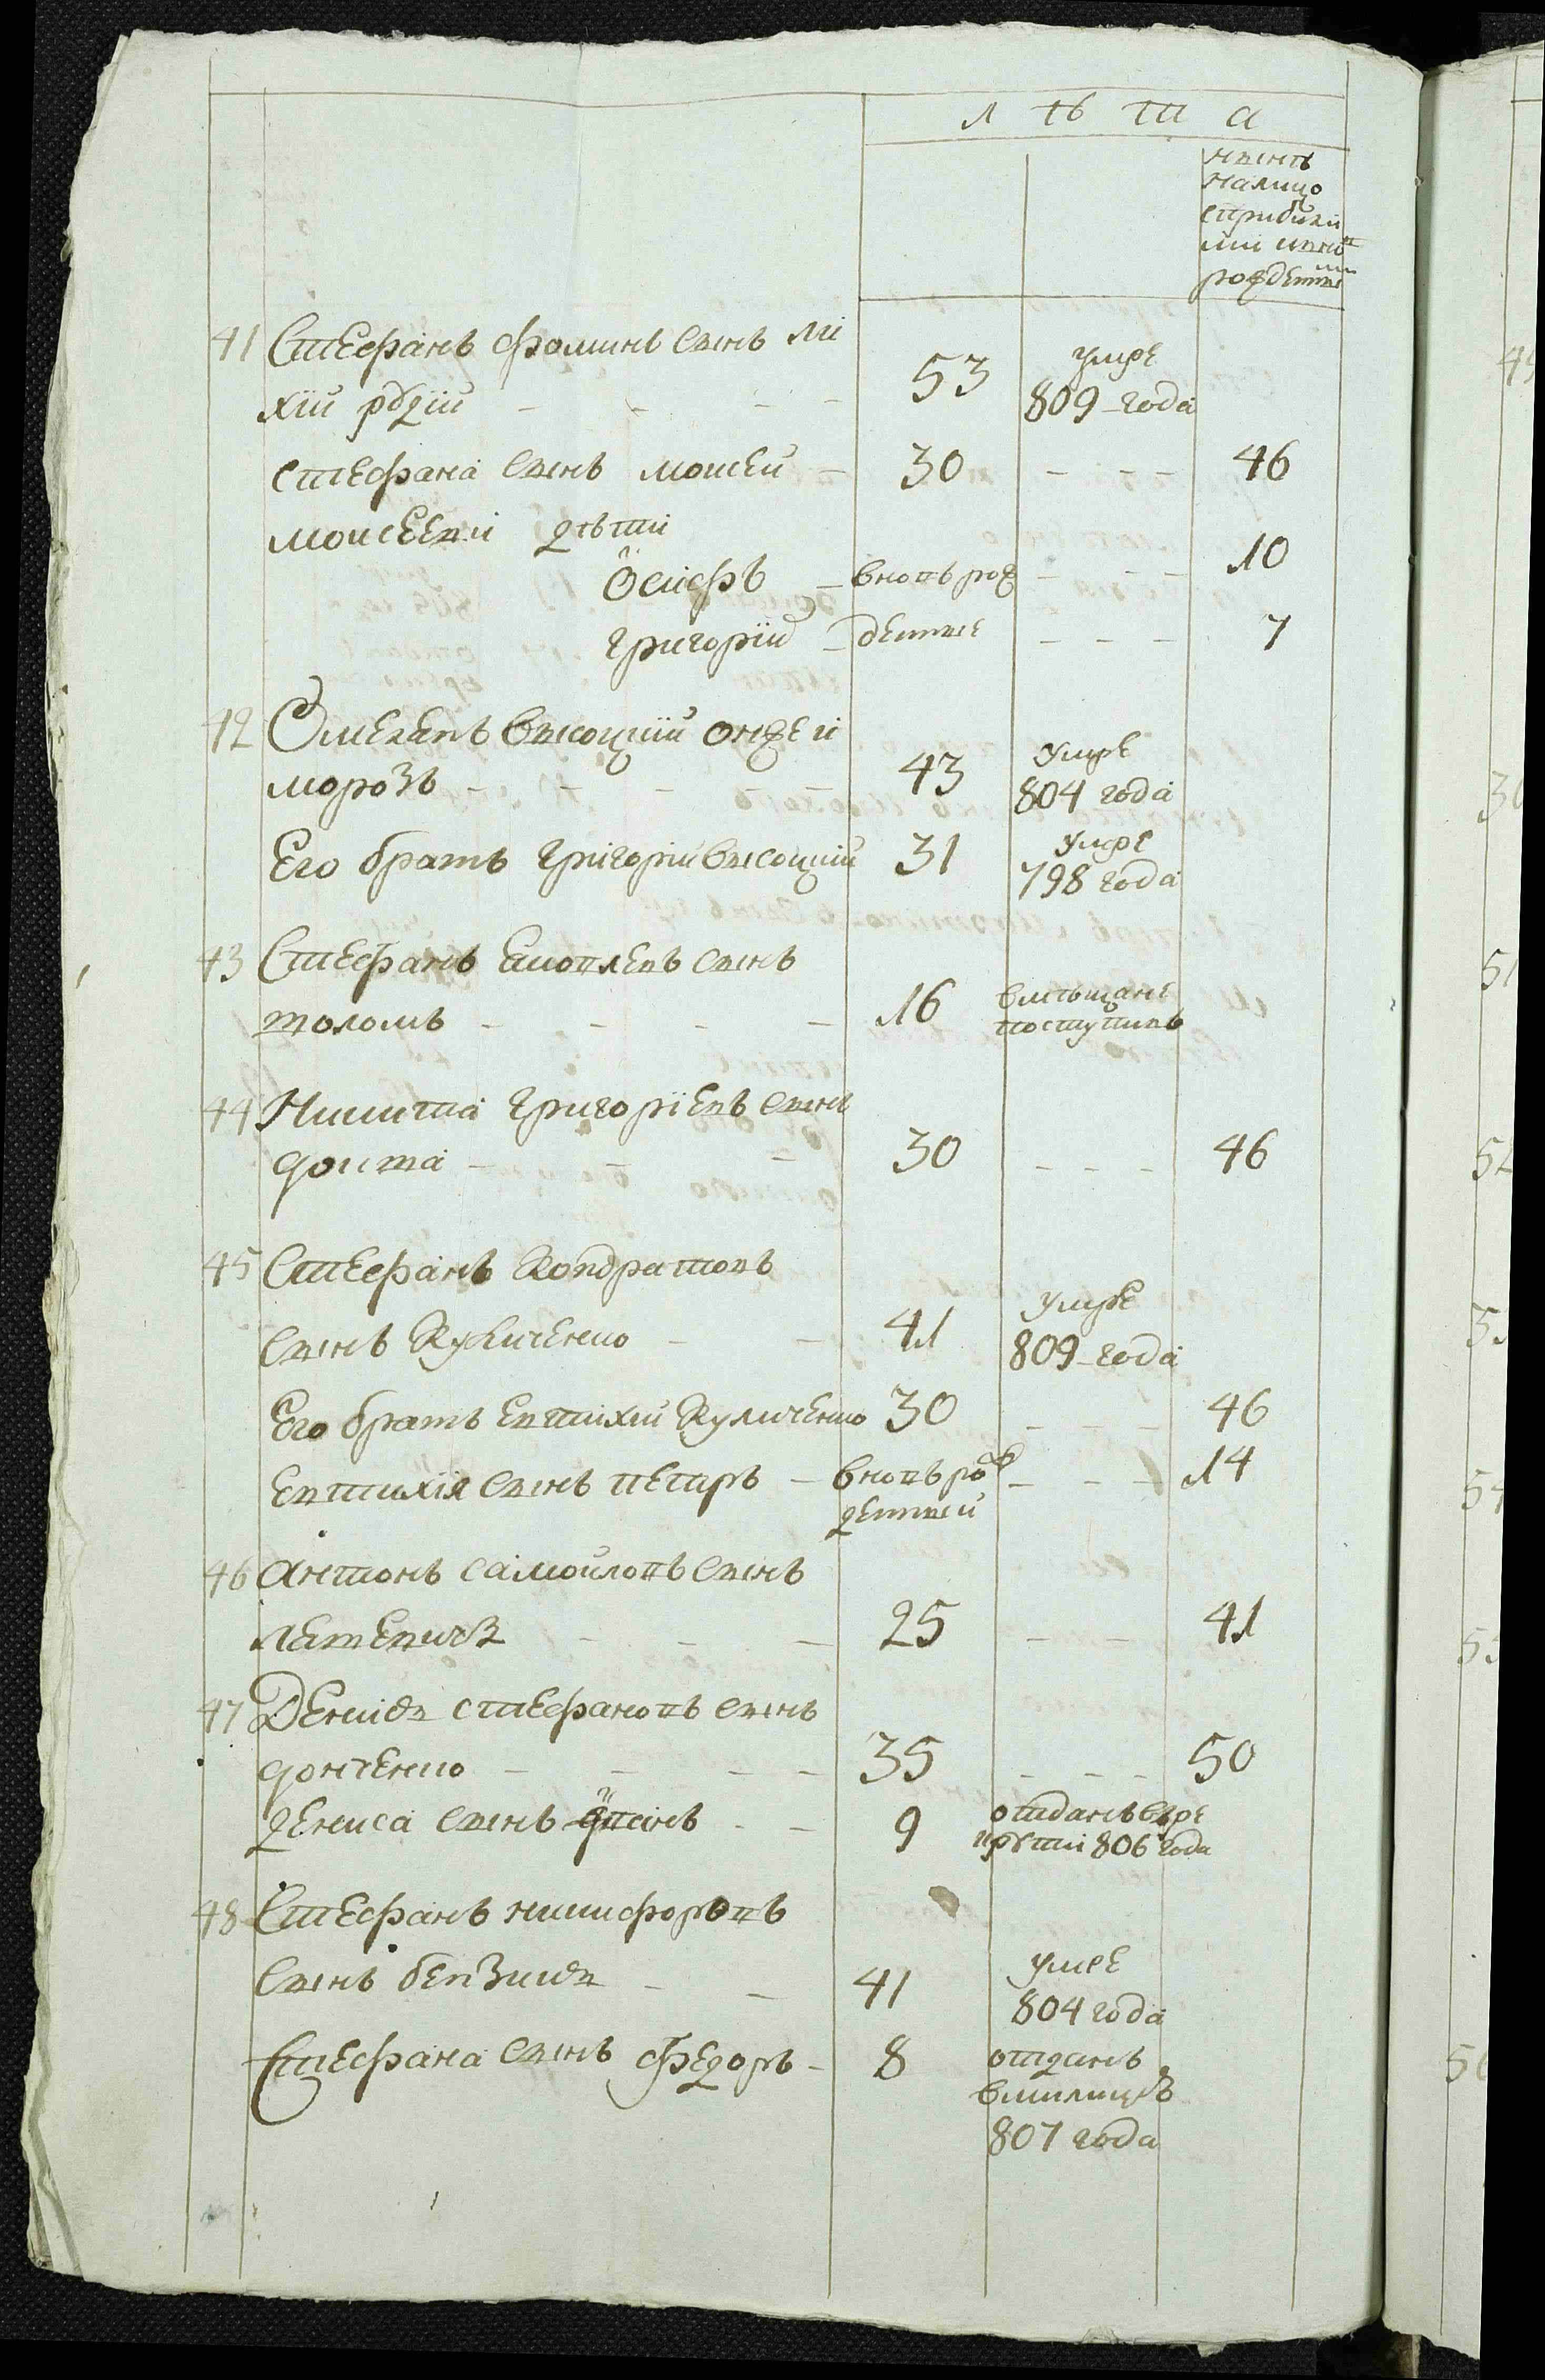 Лѣта
нынѣ
налицо
сприбилы
ми ивно
рожденны
ми
41 Стефанъ Фоминъ сынъ Ли
хій рудій - - - - 53 умре 809 года
Стефана сынъ Мойсей - 30 - - - 46
Мойсеевы дѣти
Осифъ - вновь рож - - - 10
Григорій - денные - - - 7
42 Омелянъ Высоцкій онже и
Морозъ - - - - 43 умре 804 года
Его братъ Григорій Высоцкій 31 умре 798 года
43 Стефанъ сынъ
Толомъ - - - - 16 вмѣщане поступивъ
44 Никита Григоріевъ сынъ
- - - 30 - - - 46
45 Стефанъ Кондратовъ
сынъ Куличенко - - 41 умре 809 года
Его братъ Евтихій Куличенко 30 - - - 46
Евтихія сынъ Петръ - вновь рож - - - 14
денный
46 Антонъ Самойловъ сынъ
- - - 25 - - 41
47 Денисъ Стефановъ сынъ
Донченко - - - - 35 - - - 50
Дениса сынъ - - 9 отданъ в ре
круты 806 года
48 Стефанъ Никифоровъ
сынъ - - 41 умре 804 года
Стефана сынъ Федоръ - 8 отданъ
вмилицію
807 года
45
51